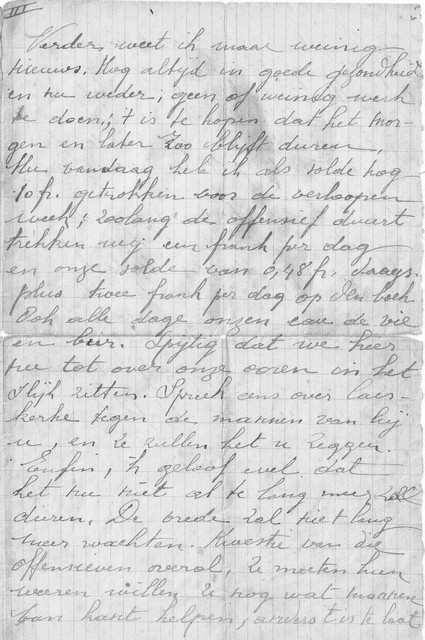 III
Verders weet ik maar weinig
nieuws. Nog altijd in goede gezondheid
en nu weder; geen of weinig werk
te doen; 't is te hopen dat het mor-
gen en later zoo blijft duren.
Nu vandaag heb ik als solde nog
10 fr. getrokken voor de verloopen
week; zoolang de offensief duurt
trekken wij een frank per dag
en onze solde van 0,48 fr. daags.
plus twee frank per dag op den boek
Ook alle dage onzen eau de vie
en bier. Spijtig dat we hier
nu tot over onze ooren in het
slijk zitten. Spreek eens over
kerke tegen de mannen van bij
u, en ze zullen het u zeggen.
Enfin, 'k geloof wel dat
het nu niet al te lang meer zal
duren. De vrede zal niet lang
meer wachten. Kwestie van die
offensieven overal, ze moeten hun
weeren willen ze nog wat
van kant helpen, anders 't is te laat